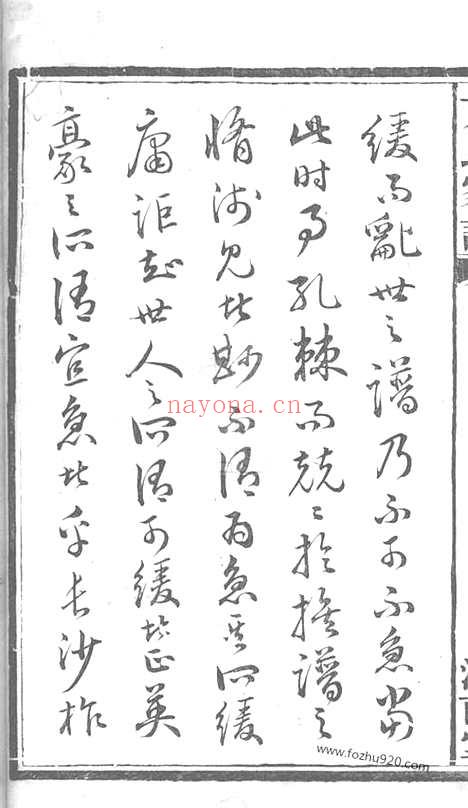 緩而亂世之譜乃不可不急當
此時事孔棘而兢兢於族譜之
脩淺見者尟不謂為急其所緩
庸詎知世人之所謂可緩者正英
豪之所謂宜急者乎長沙柞
nayona.cn
www.fozhu920.com